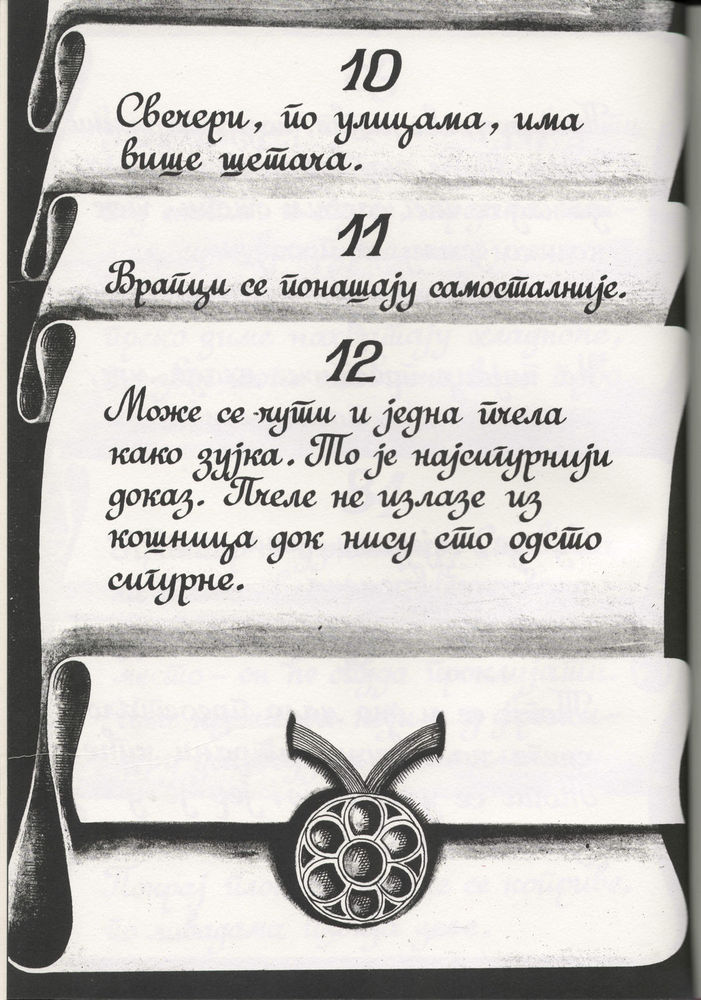 10
Свечери, по улицама, има
више шетача.
11
Врапци се понашају самосталније.
12
Може се чути и једна пчела
како зујка. То је најсигурнији
доказ. Пчеле не излазе из
кошница док нису сто одсто
сигурне.